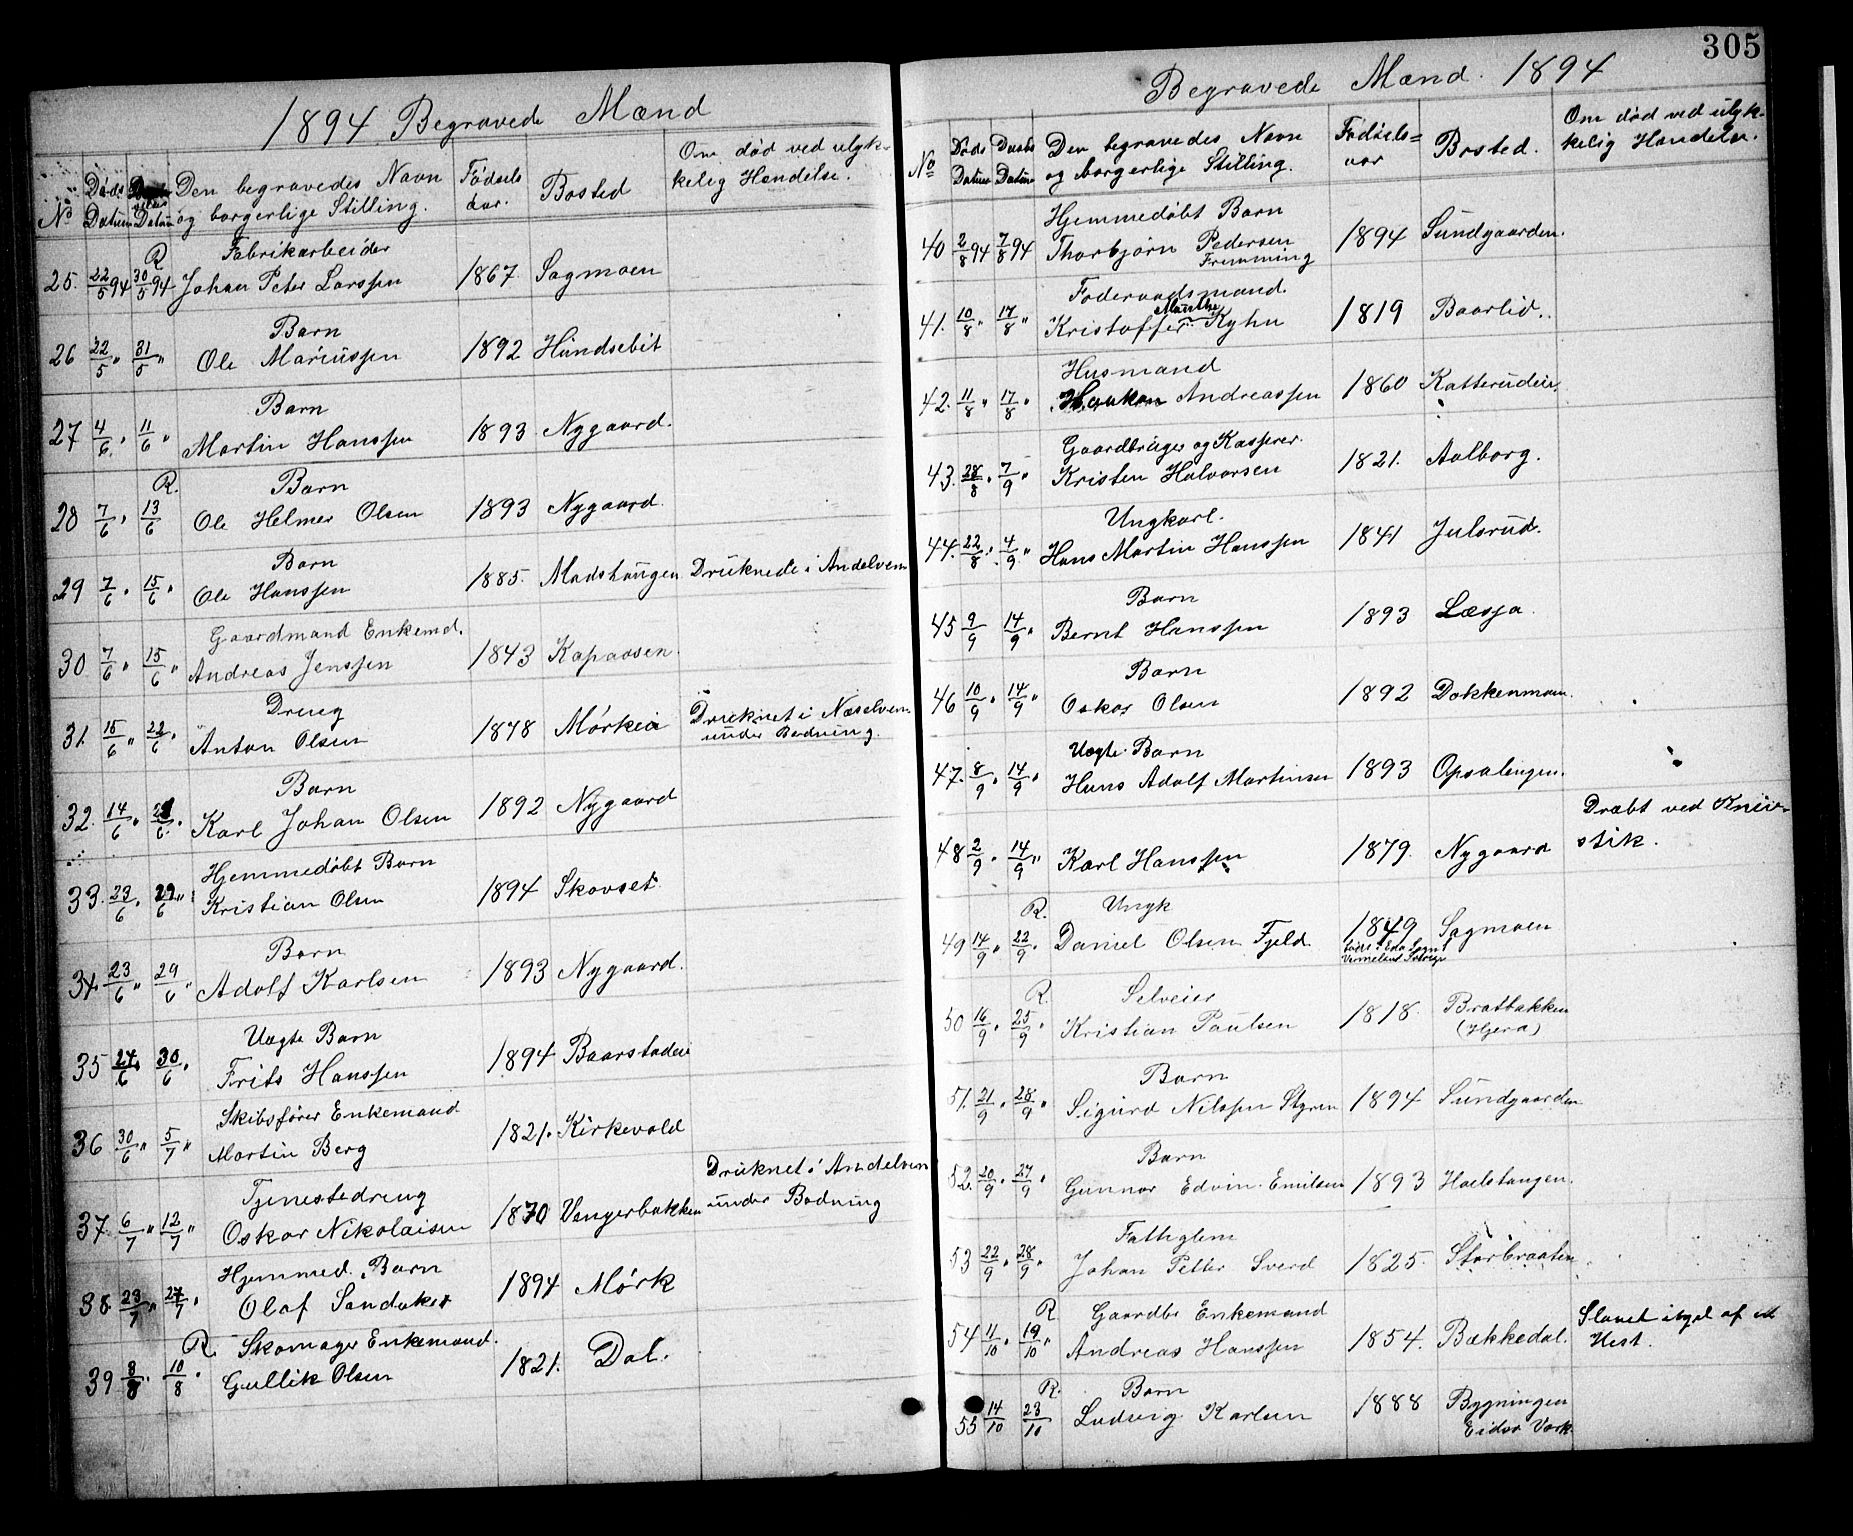 305
1894 Begravede Mænd
No Døds Datum Datum Den begravedes Navn og borgerlige Stilling. Fødsels aar. Bosted Om død ved ulyk-kelig Hændelse.
R Fabrikarbeider
25. 22/5 94 30/5 94 Johan Peter Larssen 1867. Sagmoen
Barn
26 22/5 " 31/5 " Ole Mariussen 1892 Hundsebit
Barn
27 4/6 " 11/6 " Martin Hanssen 1893 Nygaard.
R. Barn
28 7/6 " 13/6 Ole Helmer Olsen 1893 Nygaard.
Barn
29 7/6 " 15/6 " Ole Hanssen 1885. Madshaugen Druknede i Andelven
Gaardmand Enkemd.
30 7/6 " 15/6 " Andreas Jenssen 1843 Kapaasen.
Dreng
31. 15/6 " 22/6 " Anton Olsen 1878 Mørkeia Druknet i Næselven
under Badning
Barn
32. 14/6 " 6 " Karl Johan Olsen 1892 Nygaard
Hjemmedøbt Barn
33. 23/6 " 29/6 " Kristian Olsen 1894 Skovset.
Barn
34. 23/6 " 29/6 " Adolf Karlsen 1893 Nygaard.
Uægte Barn
35 24/6 " 30/6 " Frits Hanssen 1894 Baarstadeie
Skibsfører Enkemand
36 30/6 " 5/7 " Martin Berg 1821. Kirkevold
Tjenestedreng Druknet i Andelven
37. 6/7 " 12/7 " Oskar Nikolaisen 1870 Vengerbakken under Badning
Hjemmed. Barn
38 23/7 " 27/7 " Olaf Sandaker 1894 Mørk
R. Skomager Enkemand.
39 8/8 " 10/8 " Gullik Olsen 1821. Dal.
Begravede Mænd. 1894
No Døds Datum Datum Den begravedes Navn og borgerlige Stilling. Fødsels-aar Bosted. Om død ved ulyk-kelig Hændelse.
Hjemmedøbt Barn
40 2/8 94 7/8 94 Thorbjørn Pedersen 1894 Sundgaarden.
Fremming
Føderaadsmand.
Munthe
41. 10/8 " 17/8 " Kristoffer Kyhn 1819 Baarlid.
Husmand
42. 11/8 " 17/8 " Haakon Andreassen 1860 Katterudeie.
Gaardbruger og Kasserer.
43. 28/8 " 7/9 " Kristen Halvorsen 1821. Aalborg.
Ungkarl.
44. 22/8 " 4/9 " Hans Martin Hanssen 1841 Julsrud.
Barn
45 9/9 14/9 " Bernt Hanssen 1893 Læsja.
Barn
46 10/9 " 14/9 " Oskar Olsen 1892 Dokkenmoen.
Uægte Barn
47. 8/9 " 14/9 " Hans Adolf Martinsen 1893 Opsalengen.
Dræbt ved Kniv-
48 2/9 " 14/9 " Karl Hanssen 1879. Nygaard stik.
R. Ungk
49 14/9 " 22/9 " Daniel Olsen Fjeld. 1849 Sagmoen
Eda Sogn
Vermeland Sverige
R. Selveier
50 16/9 " 25/9 " Kristian Paulsen 1818. Bratbakken
(Hjera)
Barn
51. 21/9 " 28/9 " Sigurd Nilssen Styren 1894 Sundgaarden
Barn
52. 20/9 " 27/9 " Gunnar Edvin Emilsen 1893 Haelstangen.
Fattiglem
53 22/9 " 28/9 " Johan Petter Sverd 1825. Storbraaten
R Gaardbr Enkemand Slaaet ihjel af et
54 11/10 " 19/10 " Andreas Hanssen 1854. Bækkedal. Hest.
R. Barn
55 14/10 23/10 Ludvig Karlsen 1888 Bygningen
Eidsv Værk.